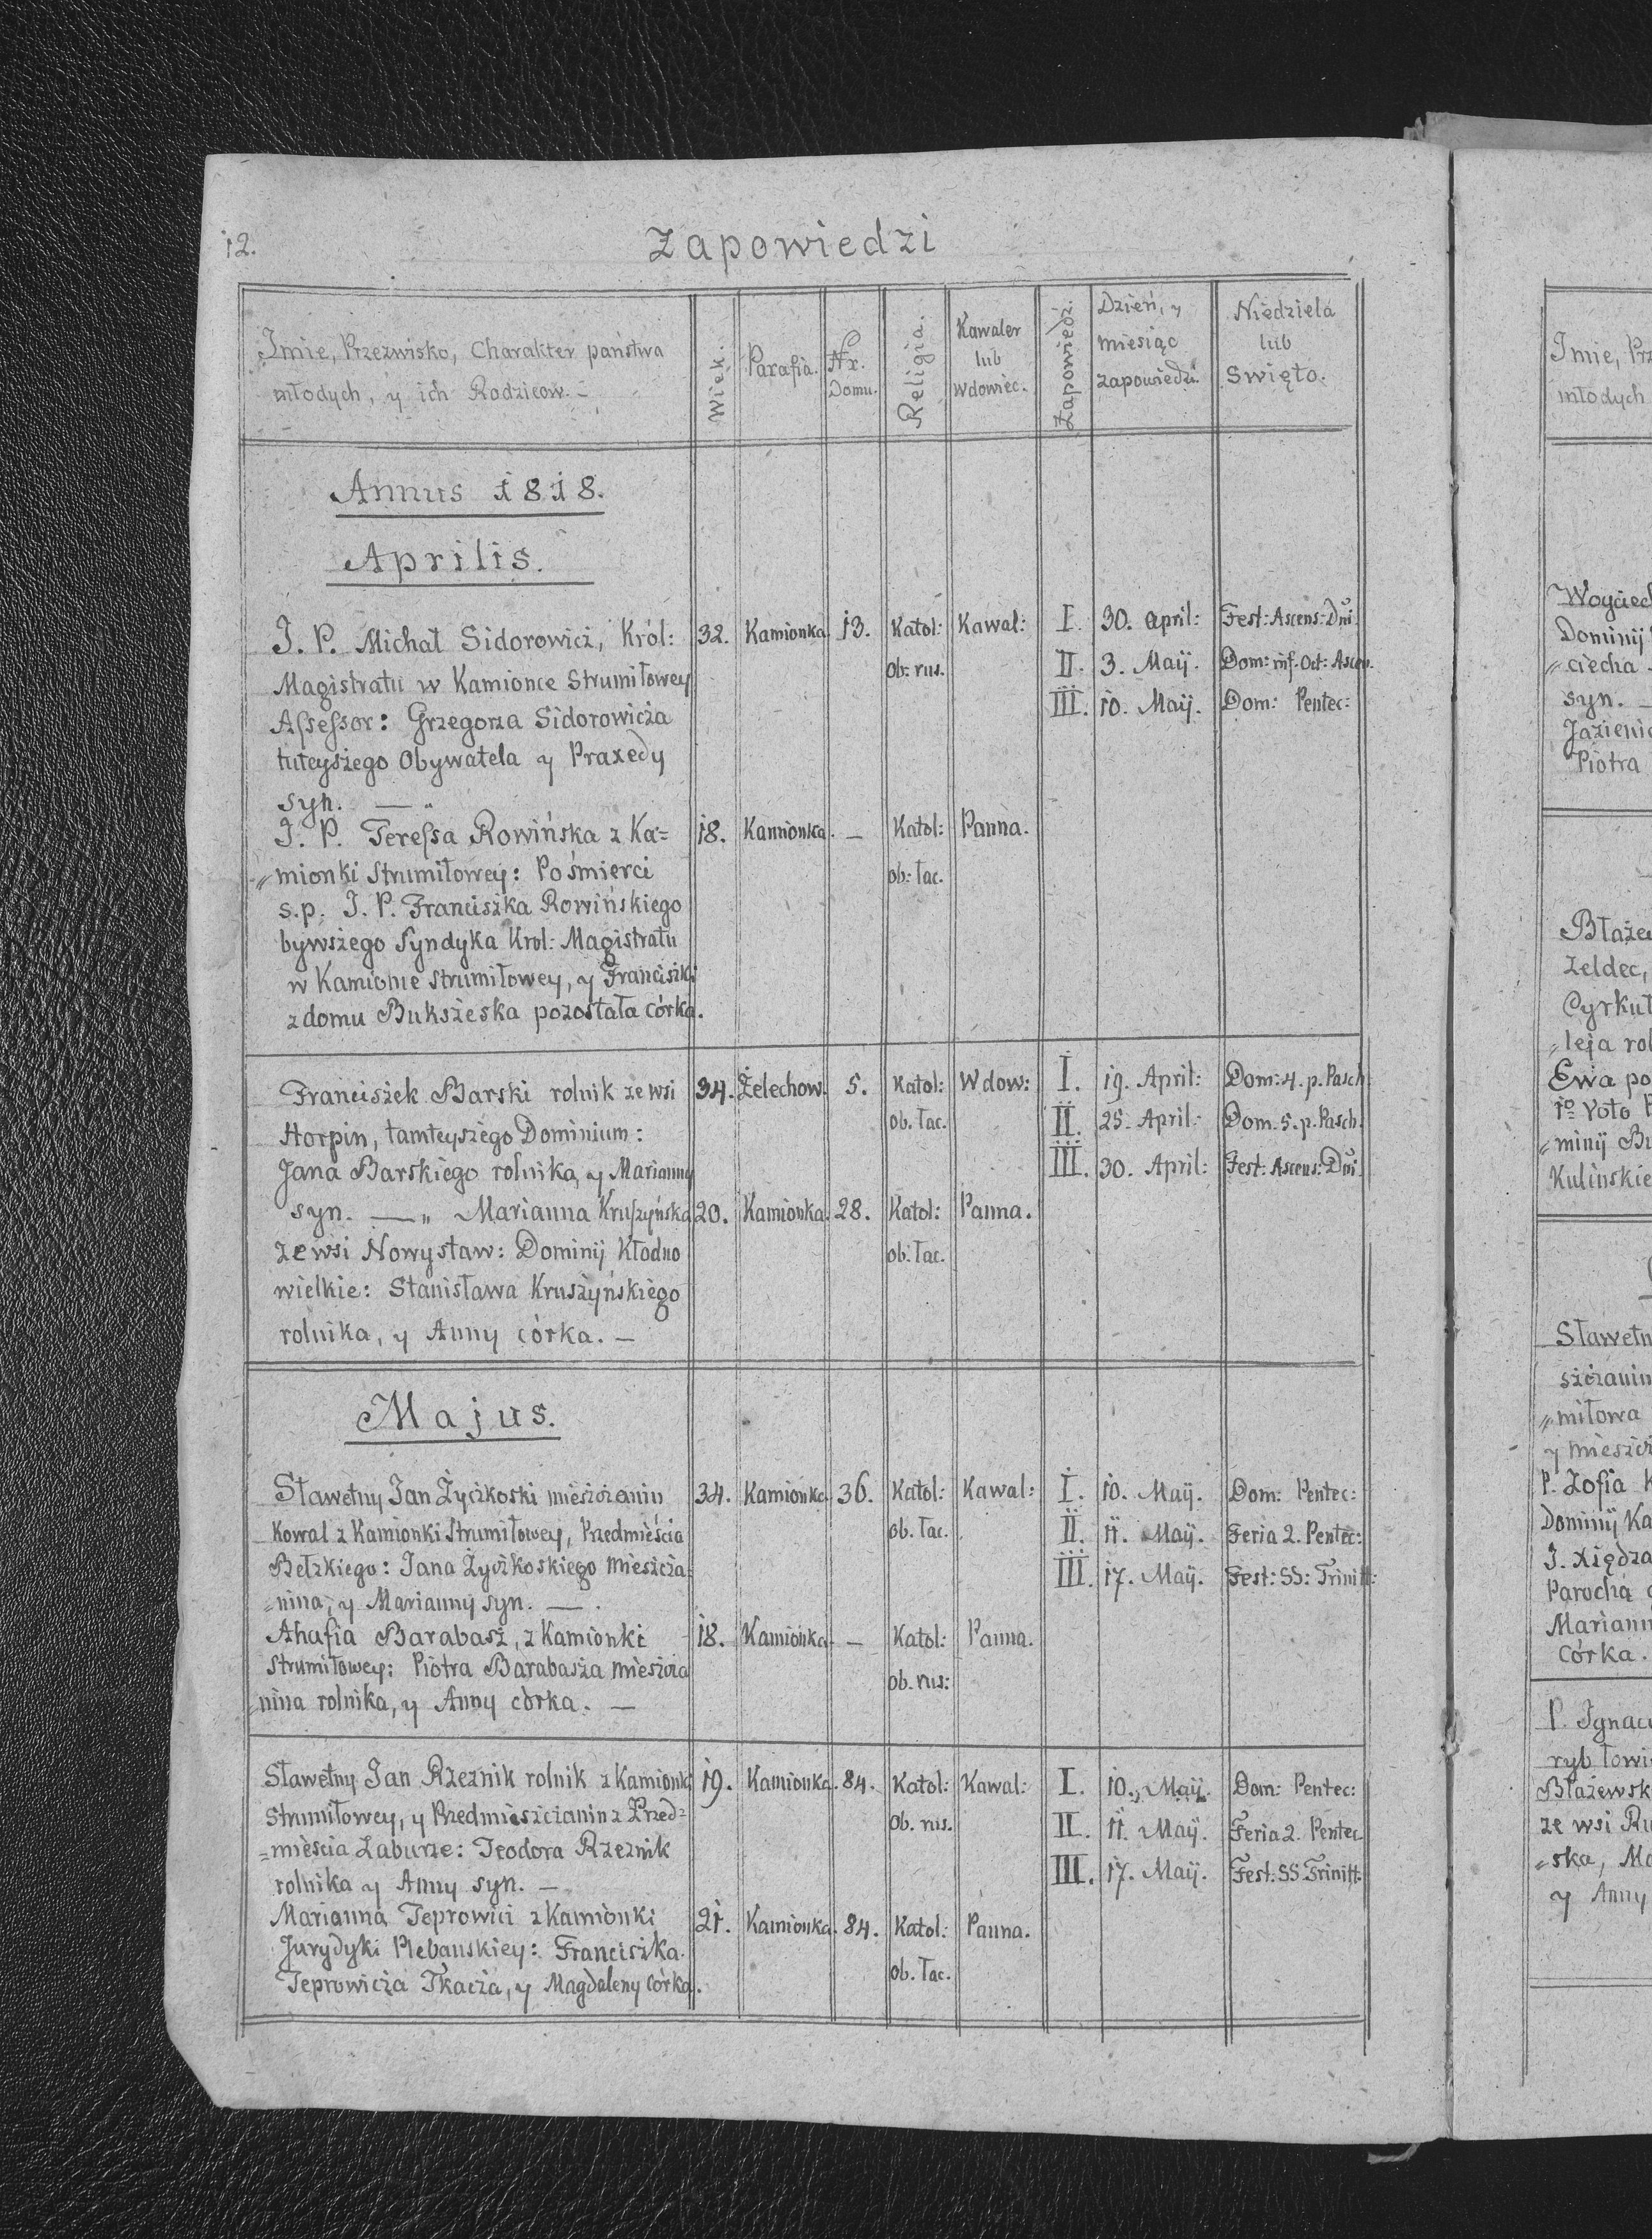 12.
Zapowiedzi
Imie, Przezwisko, Charakter państwa
młodych, y ich Rodzicow. –
Wiek.
Parafia.
Nr.
Domu.
Religia.
Kawaler
lub
Wdowiec.
Zapowiedź.
Dzień, y
miesiąc
zapowiedzi.
Niedziela
lub
Swięto.
Annus 1818.
Aprilis.
J. P. Michał Sidorowicz, Król: 32. Kamionka. 13. Katol: Kawal: I. 30. April: Fest: Ascens: Dni.
Magistratu w Kamionce Strumiłowey ob: rus. II. 3. Maÿ. Dom: inf. Oct: Ascen.
Assessor: Grzegorza Sidorowicza III. 10. Maÿ. Dom: Pentec:
tuteyszego Obywatela y Praxedy
syn. — "
J. P. Teressa Rowińska z Ka= 18. Kamionka. — Katol: Panna.
"mionki Strumiłowey: Po śmierci ob: łac.
s.p. J. P. Franciszka Rowińskiego
bywszego Syndyka Krol: Magistratu
w Kamionce Strumiłowey, y Franciszki
z domu Bukszeska pozostała córka.
Franciszek Barski rolnik ze wsi 34. Żelechow. 5. Katol: Wdow: I. 19. April: Dom: 4. p. Pasch:
Horpin, tamteyszego Dominium: ob. łac. II. 25. April: Dom. 5. p. Pasch.
Jana Barskiego rolnika, y Marianny III. 30. April: Fest: Ascens: Dni.
syn. — " Marianna Kruszyńska 20. Kamionka. 28. Katol: Panna.
ze wsi Nowystaw: Dominij Kłodno ob: łac.
wielkie: Stanisława Kruszyńskiego
rolnika, y Anny córka. –
Majus.
Sławetny Jan Życzkoski mieszczanin 34. Kamionka. 36. Katol: Kawal: I. 10. Maÿ. Dom: Pentec:
Kowal z Kamionki Strumiłowey, Przedmieścia ob. łac. II. 11. Maÿ. Feria 2. Pentec:
Bełzkiego: Jana Życzkoskiego mieszcza= III. 17. Maÿ. Fest: SS: Trinitt:
=nina, y Marianny syn. — .
Ahafia Barabasz, z Kamionki 18. Kamionka — Katol: Panna.
Strumiłowey: Piotra Barabasza mieszcza ob. rus:
"nina rolnika, y Anny córka. —
Sławetny Jan Rzeznik rolnik z Kamionki 19. Kamionka. 84. Katol: Kawal: I. 10. Maÿ. Dom: Pentec:
Strumiłowey, y Przedmieszczanin z Przed= ob. rus. II. 11. Maÿ. Feria 2. Pentec.
=mieścia Zaburze: Teodora Rzeznik III. 17. Maÿ. Fest: SS Trinitt.
rolnika y Anny syn. —
Marianna Teprowicz z Kamionki 21. Kamionka. 84. Katol: Panna.
Jurydyki Plebanskiey: Franciszka ob. łac.
Teprowicza Tkacza, y Magdaleny córka.
Imie, Prz
młodych
Woyciech
Dominij
"ciecha
syn. —
Jazienic
Piotra
Błażej
Żeldec,
Cyrkuł
"leja rol
Ewa po
1o Voto
"minij Bu
Kulinskie
Sławetn
szczanin
"miłowa
y mieszcz
P. Zofia K
Dominij Ka
J. Xiędza
Parocha
Mariann
Córka.
P. Ignacy
ryb łowi
Błażewsk
ze wsi Ru
"ska, Ma
y Anny